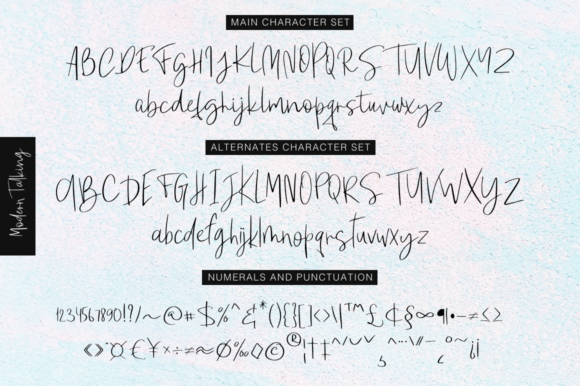 MAIN CHARACTER SET
ABCDEFGHIJKLMNOPQRSTUVWXYZ
abcdefghijklmnopqrstuvwxyz
Modern Talking
ALTERNATES CHARACTER SET
ABCDEFGHIJKLMNOPQRSTUVWXYZ
abcdefghijklmnopqrstuvwxyz
NUMERALS AND PUNCTUATION
1234567890!?/~@#$%^&*(){}[]<>\|™£¢§∞¶•–≠≤≥
«»¨¤€¥×÷≠≈Ø‰◊©®¦†‡